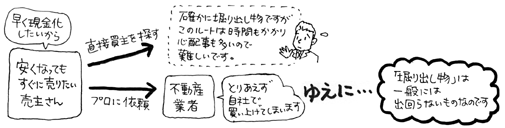 早く現金化
したいから
安くなっても
すぐに売りたい
売主さん
直接買主を探す
確かに掘り出し物ですが
このルートは時間もかかり
心配事も多いので
難しいです。
プロに依頼
不動産
業者
とりあえず
自社で
買い上げてしまいます
ゆえに…
「掘り出し物」は
一般には
出回らないものなのです